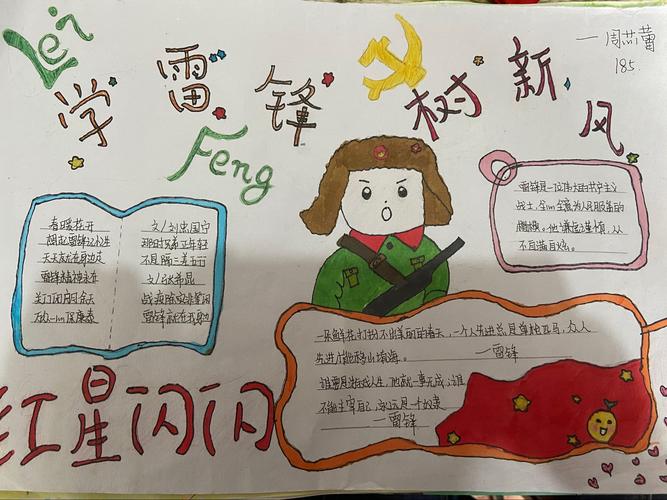 Lei
学雷锋树新风
Feng
一周燕蕾
185.
春暖花开
想起雷锋
天天
雷锋精神永在
文/刘忠国宁
那时兄弟正年轻
不见
文/张希显
雷锋就在我身边
雷锋是一位伟大的共产主义
战士,全心全意为人民服务的
楷模。他谦虚谨慎,从
不自满自炫。
一朵鲜花打扮不出美丽的春天,一个人先进总是单枪匹马,众人
先进才能移山填海。
一雷锋
谁要是游戏人生,他就一事无成;谁
不能主宰自己,永远是一个奴隶
一雷锋
红星闪闪